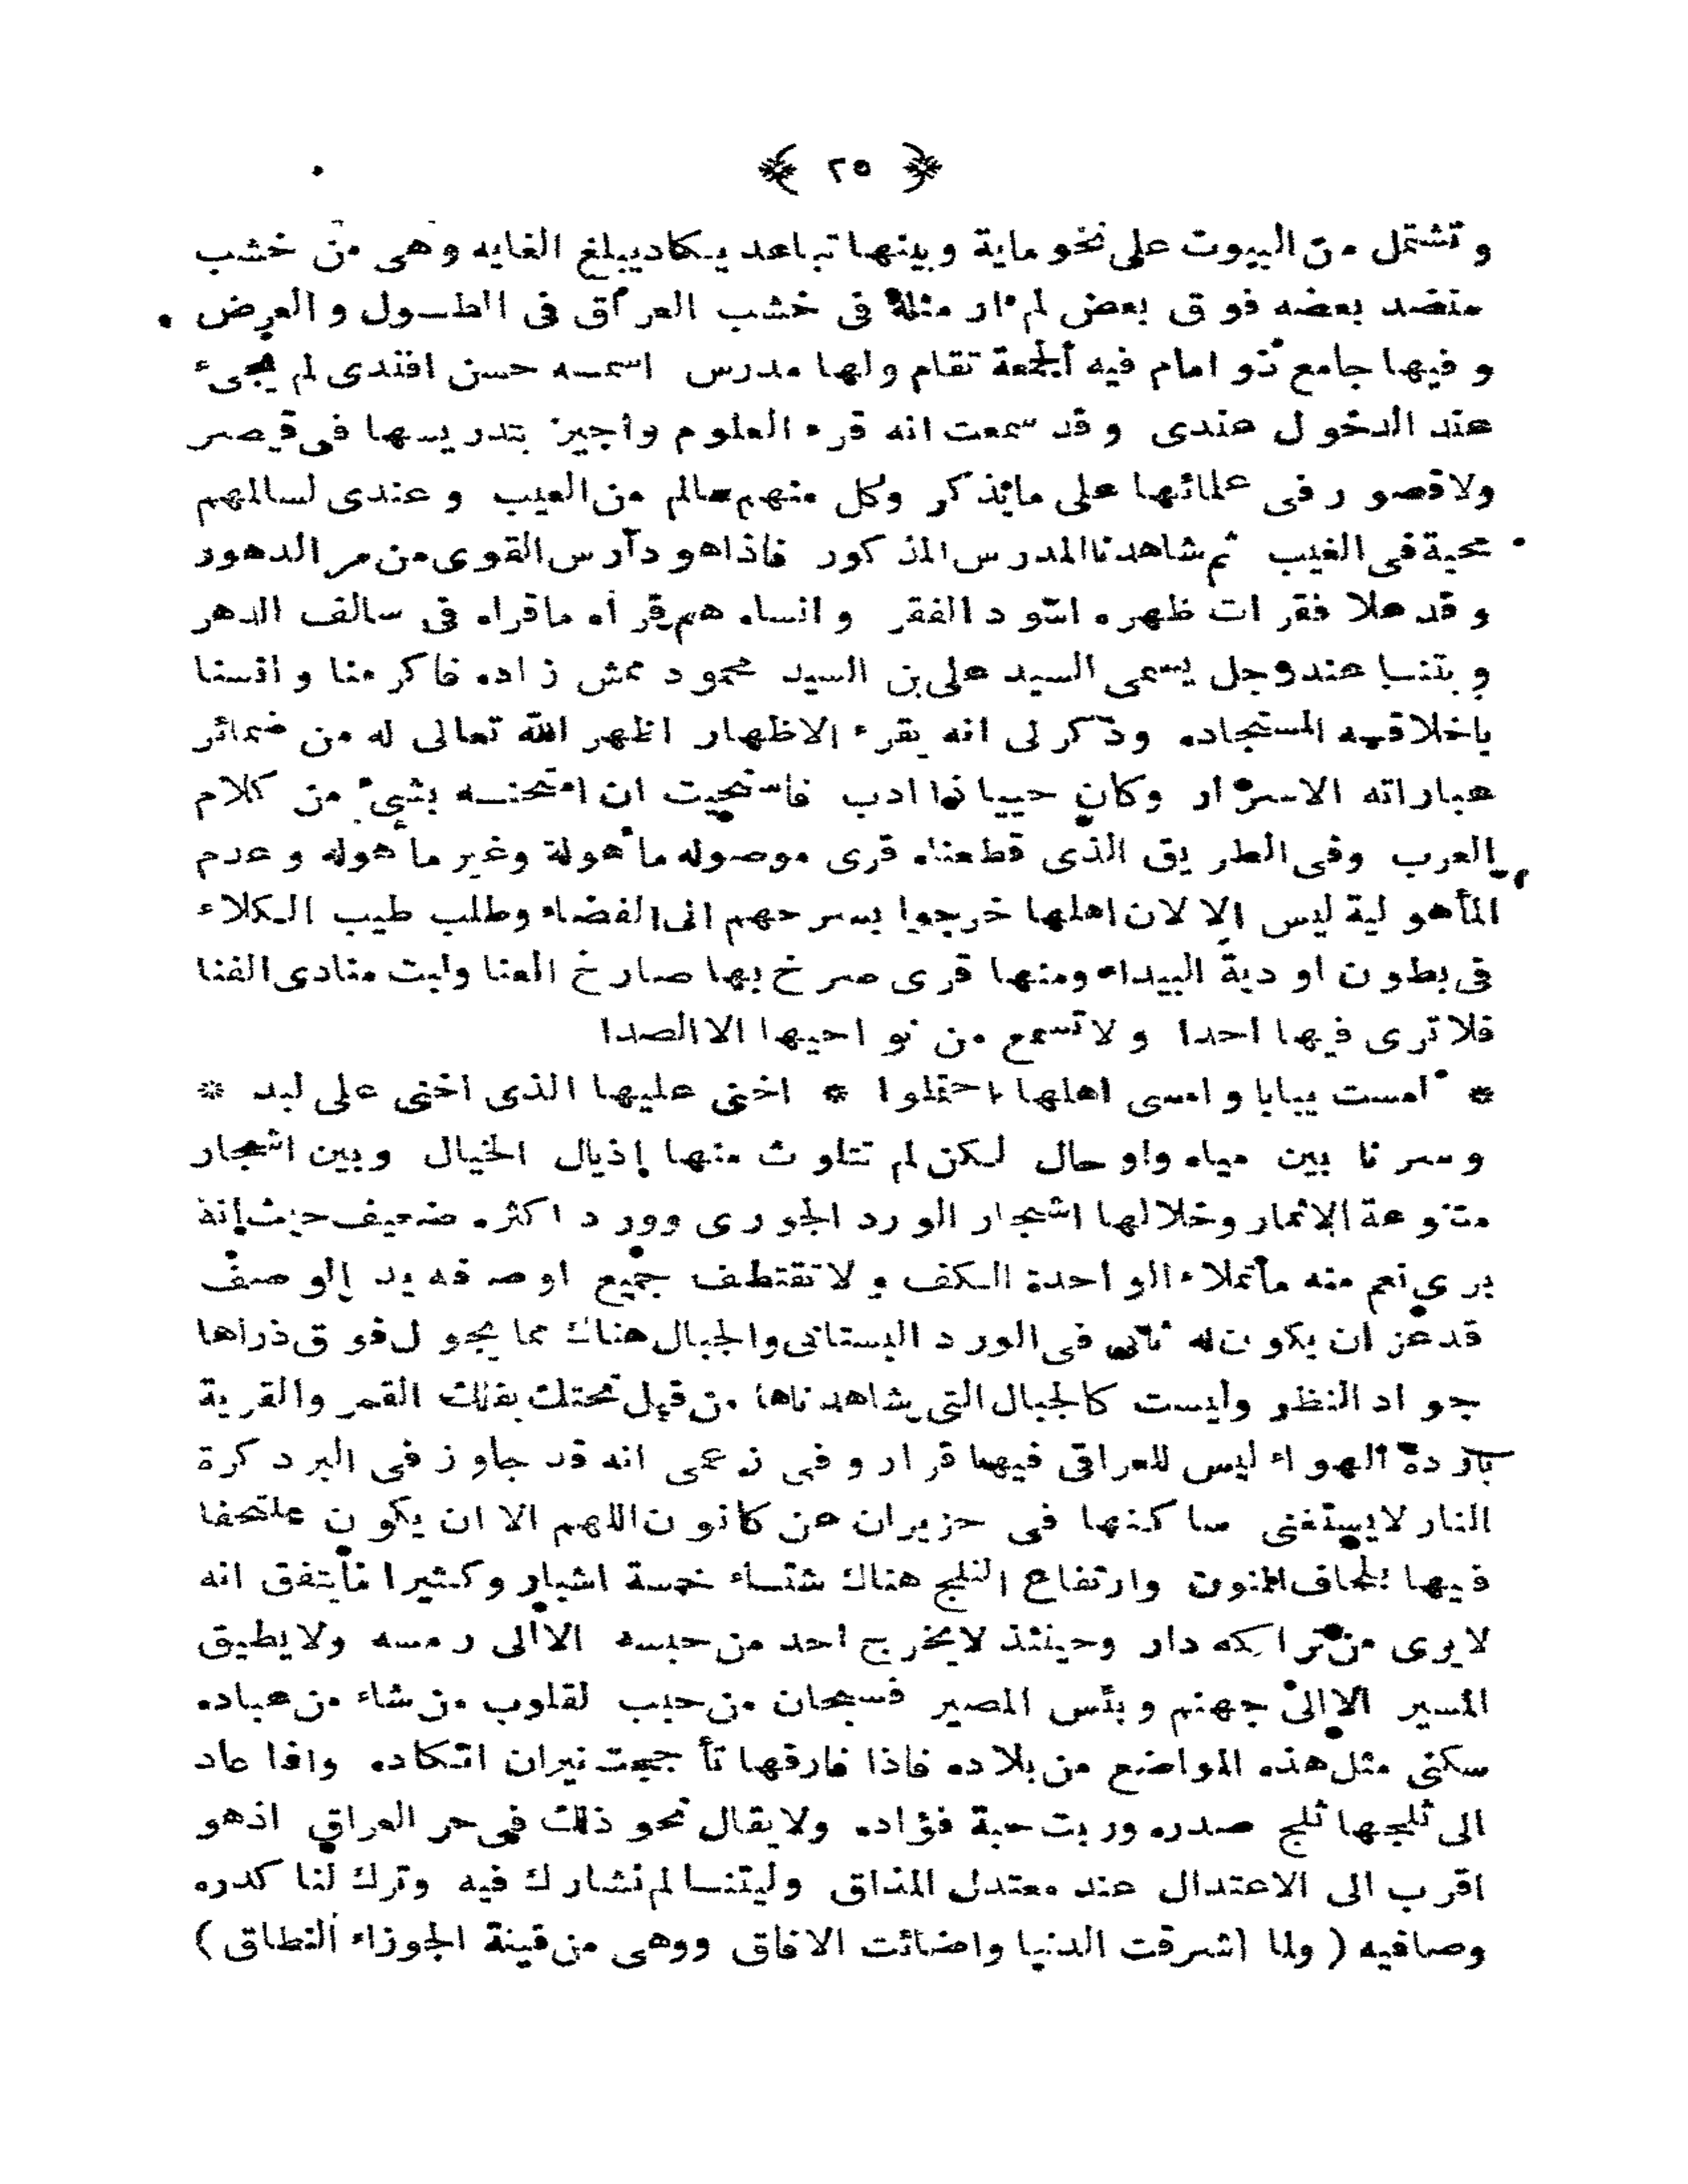 ﴿ ٢٥ ﴾
وتشتمل من البيوت على نحو ماية وبينها تباعد يكاد يبلغ الغايه وهى من خشب
منضد بعضه فوق بعض لم ار مثله فى خشب العراق فى الطول والعرض
وفيها جامع ذو امام فيه الجمعة تقام ولها مدرس اسمه حسن افندى لم يجىء
عند الدخول عندى وقد سمعت انه قرء العلوم واجيز بتدريسها فى قيصر
ولا قصور فى علمائها على مايذكر وكل منهم سالم من العيب وعندى لسالمهم
تحية فى الغيب ثم شاهدنا المدرس المذكور فاذا هو دارس القوى من مر الدهور
وقد علا فقرات ظهره اسود الفقر وانساه هم قراه ماقراه فى سالف الدهر
وبتنا عند رجل يسمى السيد على بن السيد محمود تمش زاده فاكرمنا وانسنا
باخلاقه المستجاده وذكر لى انه يقرء الاظهار اظهر الله تعالى له من ضمائر
عباراته الاسرار وكان حييا ذا ادب فاستحييت ان امتحنه بشىء من كلام
العرب وفى الطريق الذى قطعناه قرى موصوله مأهولة وغير مأهوله وعدم
المأهولية ليس الا لان اهلها خرجوا بسرحهم الى الفضاء وطلب طيب الكلاء
فى بطون اودية البيداء ومنها قرى صرخ بها صارخ العنا ولبت منادى الفنا
فلا ترى فيها احدا ولا تسمع من نواحيها الا الصدا
* امست يبابا وامسى اهلها احتملوا * اخنى عليها الذى اخنى على لبد *
وسرنا بين مياه واوحال لكن لم تتلوث منها اذيال الخيال وبين اشجار
متنوعة الاثمار وخلالها اشجار الورد الجورى وورد اكثره ضعيف حيث انه
برى نعم منه ماتملاء الواحدة الكف ولا تقتطف جميع اوصافه يد الوصف
قد عز ان يكون له ثانى فى الورد البستانى والجبال هناك مما يجول فوق ذراها
جواد النظر وليست كالجبال التى شاهدناها من قبل تحتك بفلك القمر والقرية
باردة الهواء ليس للعراقى فيها قرار وفى زعمى انه قد جاوز فى البرد كرة
النار لايستغنى ساكنها فى حزيران عن كانون اللهم الا ان يكون ملتحفا
فيها بلحاف المنون وارتفاع الثلج هناك شتاء خمسة اشبار وكثيرا مايتفق انه
لايرى من تراكمه دار وحينئذ لايخرج احد من حبسه الا الى رمسه ولا يطيق
المسير الا الى جهنم وبئس المصير فسبحان من حبب لقلوب من شاء من عباده
سكنى مثل هذه المواضع من بلاده فاذا فارقها تأججت نيران انكاده واذا عاد
الى ثلجها ثلج صدره وربت حبة فؤاده ولا يقال نحو ذلك فى حر العراق اذ هو
اقرب الى الاعتدال عند معتدل المذاق وليتنا لم نشارك فيه وترك لنا كدره
وصافيه ( ولما اشرقت الدنيا واضائت الافاق ووهى من قينة الجوزاء النطاق )